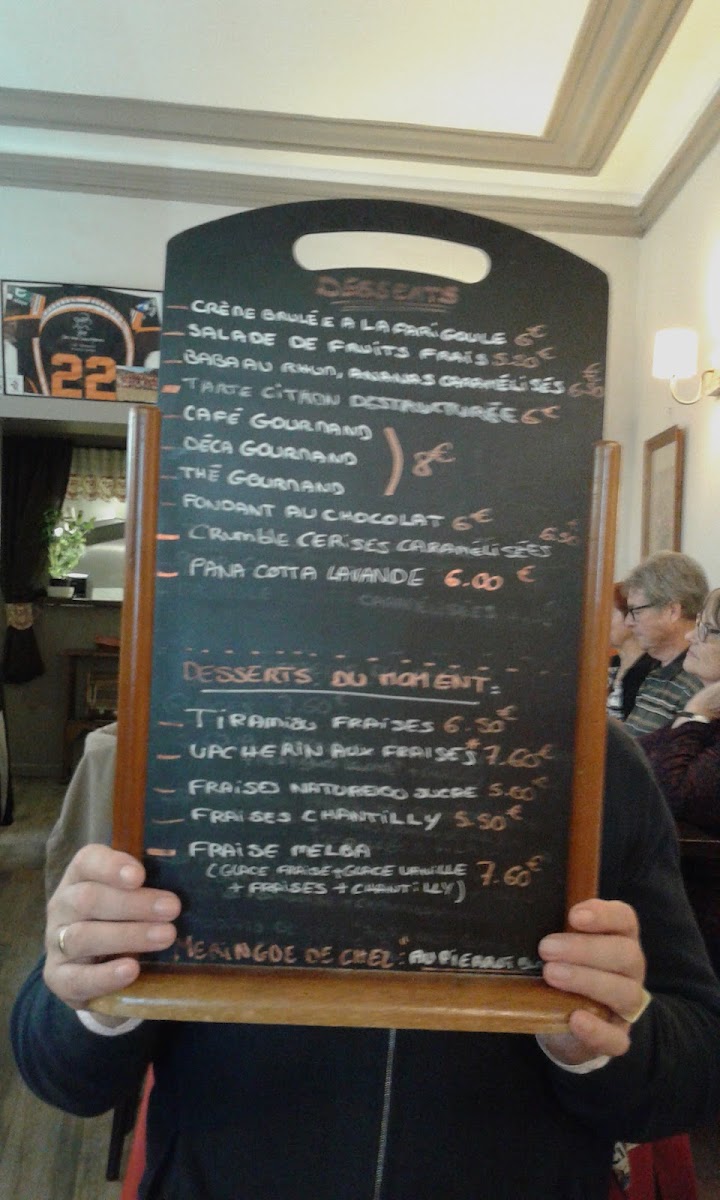 22
DESSERTS
- CRÈME BRULÉE A LA FARIGOULE 6€
- SALADE DE FRUITS FRAIS 5.50€
- BABA AU RHUM, ANANAS CARAMÉLISÉS 6.50€
- TARTE CITRON DESTRUCTURÉE 6€
- CAFÉ GOURMAND
- DÉCA GOURMAND ) 8€
- THÉ GOURMAND
- FONDANT AU CHOCOLAT 6€
- CRUMBLE CERISES CARAMÉLISÉES 6.50€
- PANA COTTA LAVANDE 6.00 €
DESSERTS DU MOMENT:
- TIRAMISU FRAISES 6.50€
- VACHERIN AUX FRAISES* 7.60€
- FRAISES NATURE OU SUCRE 5.00€
- FRAISES CHANTILLY 5.50€
- FRAISE MELBA
(GLACE FRAISE+GLACE VANILLE 7.60€
+ FRAISES + CHANTILLY)
MERINGUE DE CHEZ "AU PIERROT